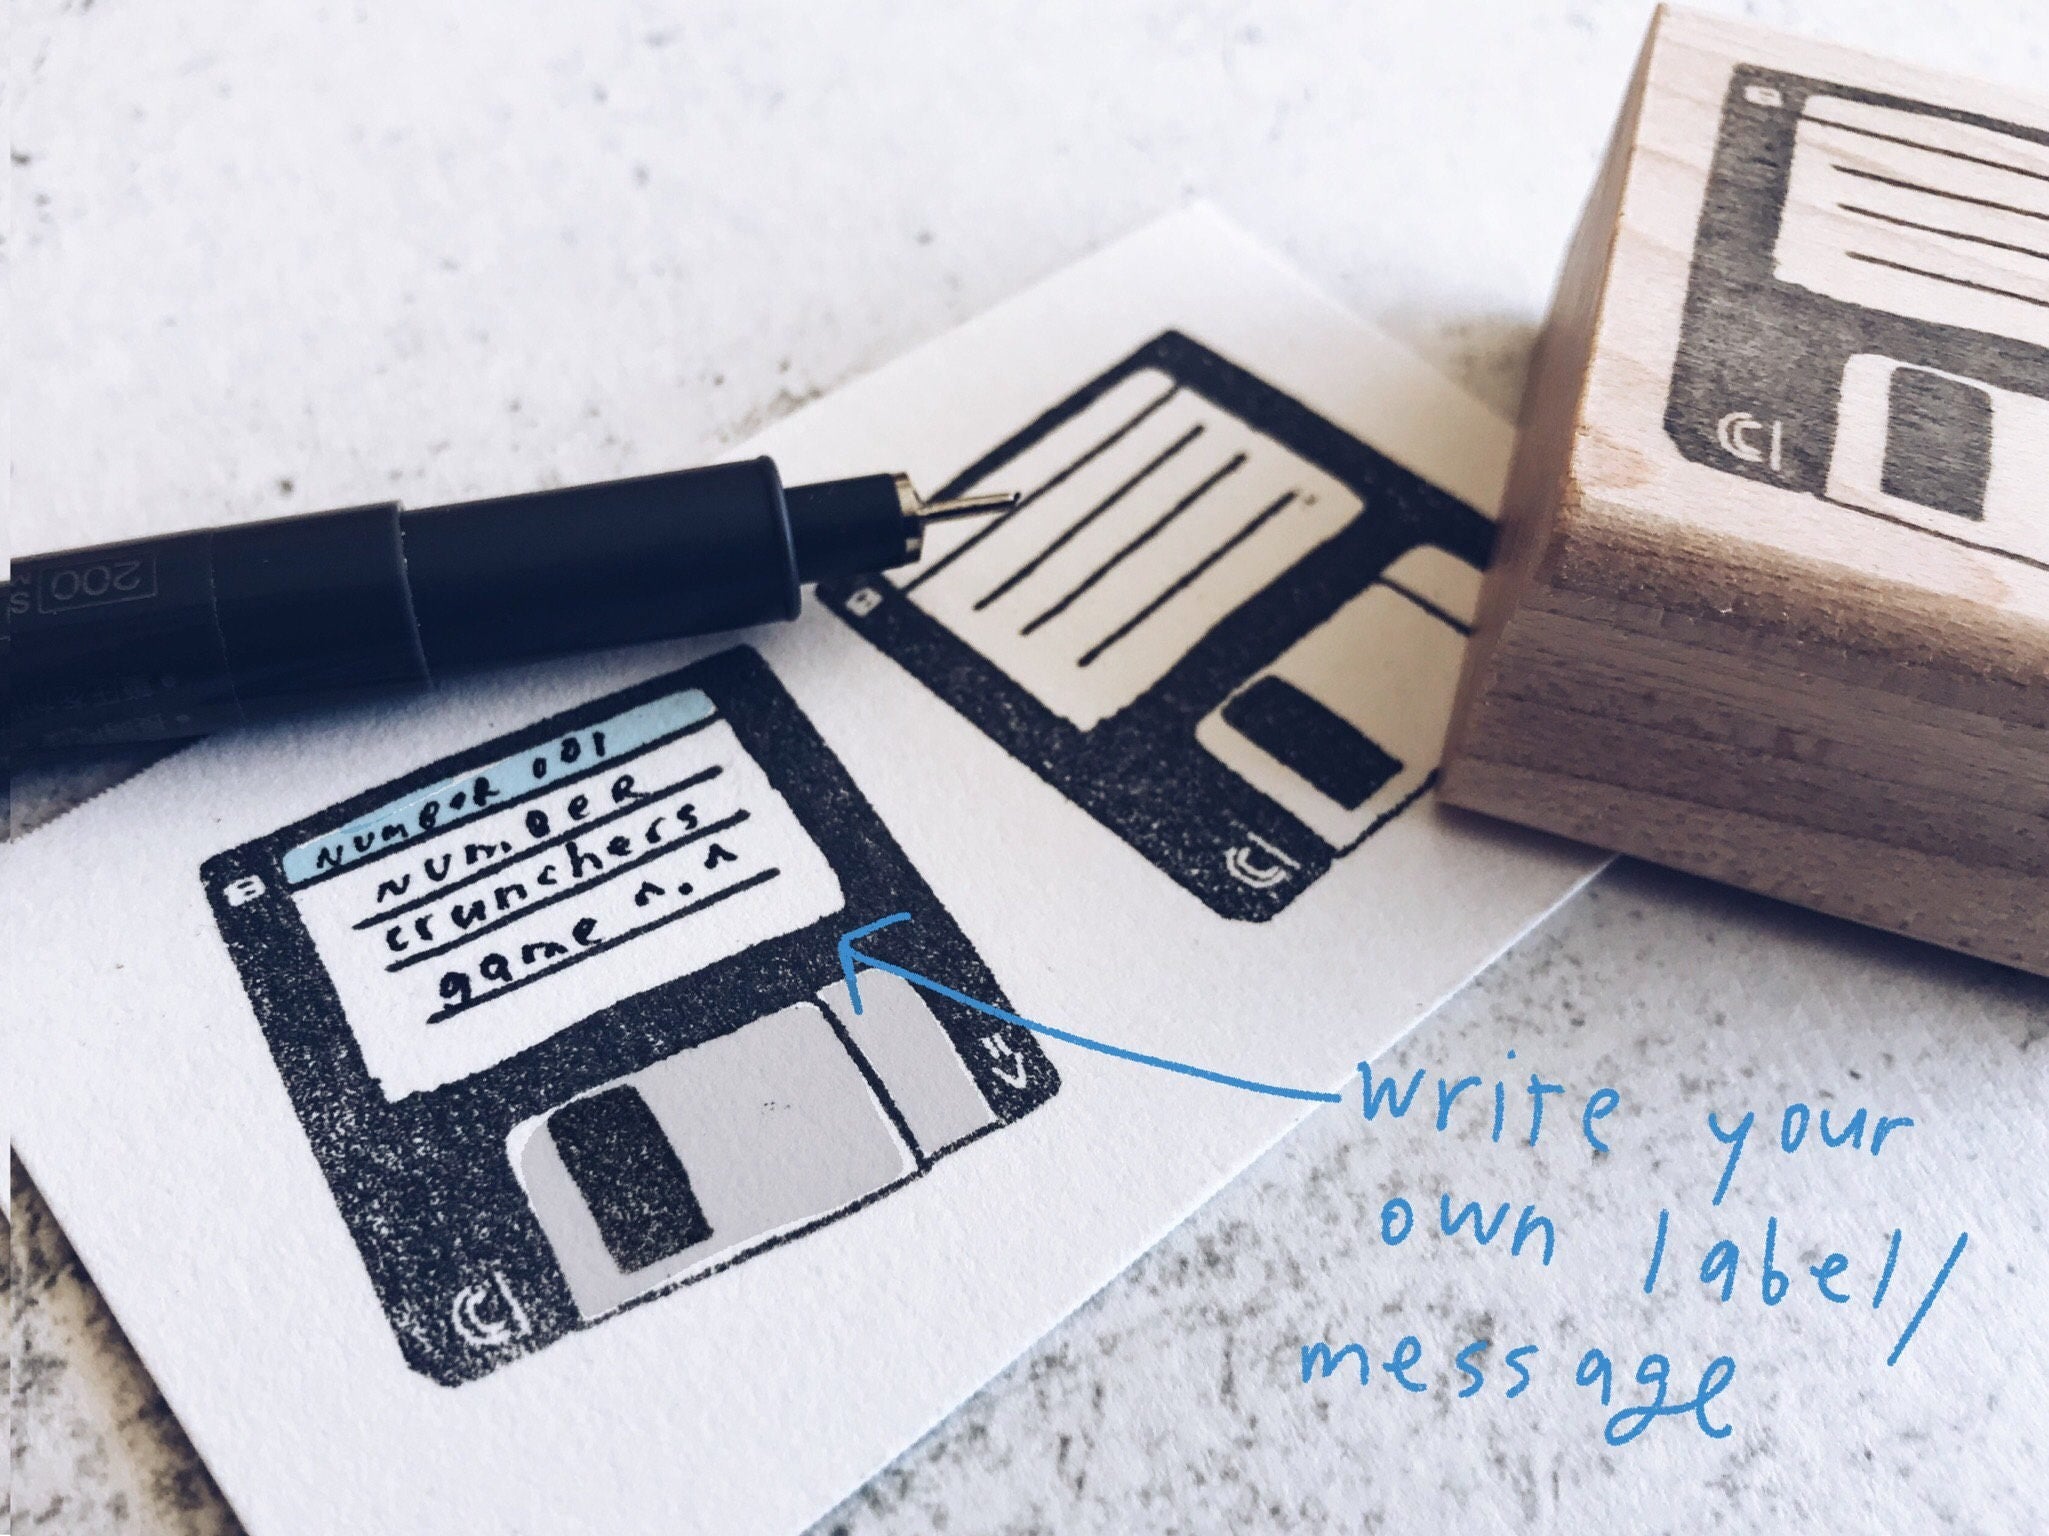 NUMBER 001
NUMBER
crunchers
game ^.^
write your
own label/
message
200